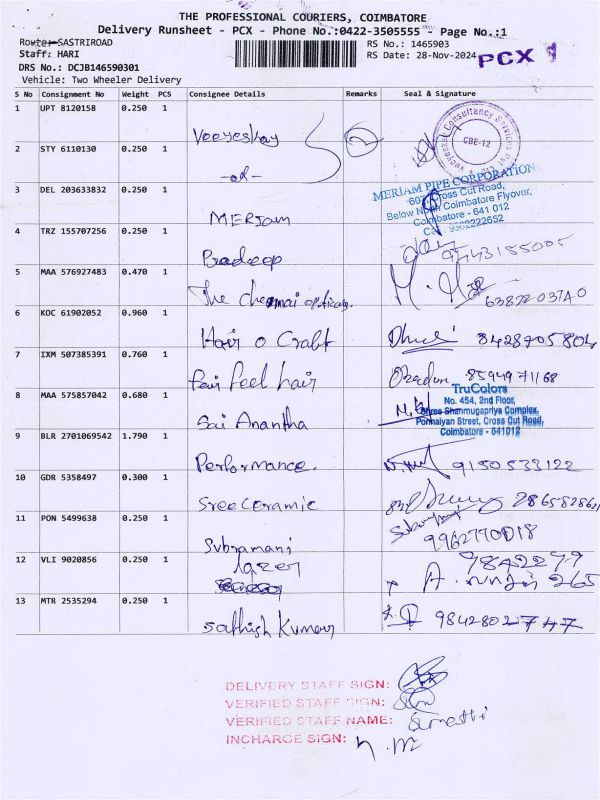 THE PROFESSIONAL COURIERS, COIMBATORE
Delivery Runsheet - PCX - Phone No.:0422-3505555 - Page No.:1
Route: SASTRIROAD
RS No.: 1465903
Staff: HARI
RS Date: 28-Nov-2024
PCX 1
DRS No.: DCJB146590301
Vehicle: Two Wheeler Delivery
S No Consignment No Weight PCS Consignee Details Remarks Seal & Signature
1 UPT 8120158 0.250 1 Veeyeskay
Veeyeskay Consultancy Services CBE-12
2 STY 6110130 0.250 1 -do-
3 DEL 203633832 0.250 1 MERIAM
MERIAM PIPE CORPORATION
Cross Cut Road,
Below North Coimbatore Flyover,
Coimbatore - 641 012
Cell : 9302222652
4 TRZ 155707256 0.250 1
5 MAA 576927483 0.470 1 The chennai opticals.
6 KOC 61902052 0.960 1 Hair o Craft 8428705804
7 IXM 507385391 0.760 1 fair feel hair 8594971168
8 MAA 575857042 0.680 1 Sai Anantha
TruColors
No. 454, 2nd Floor,
Shree Shanmugapriya Complex,
Ponnaiyan Street, Cross Cut Road,
Coimbatore - 641012
9 BLR 2701069542 1.790 1 Performance. 9150533122
10 GDR 5358497 0.300 1 Sree Ceramic
11 PON 5499638 0.250 1 Subramani 9962770018
12 VLI 9020856 0.250 1 Lazer 9842299
265
13 MTR 2535294 0.250 1 Sathish Kumar 9842802747
DELIVERY STAFF SIGN:
VERIFIED STAFF SIGN:
VERIFIED STAFF NAME:
INCHARGE SIGN: